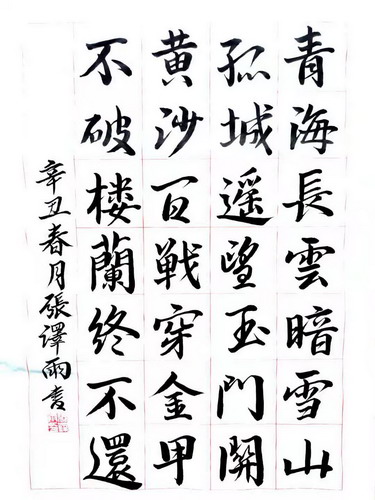 青海長雲暗雪山
孤城遥望玉門關
黄沙百戦穿金甲
不破楼蘭終不還
辛丑春月張譯雨書